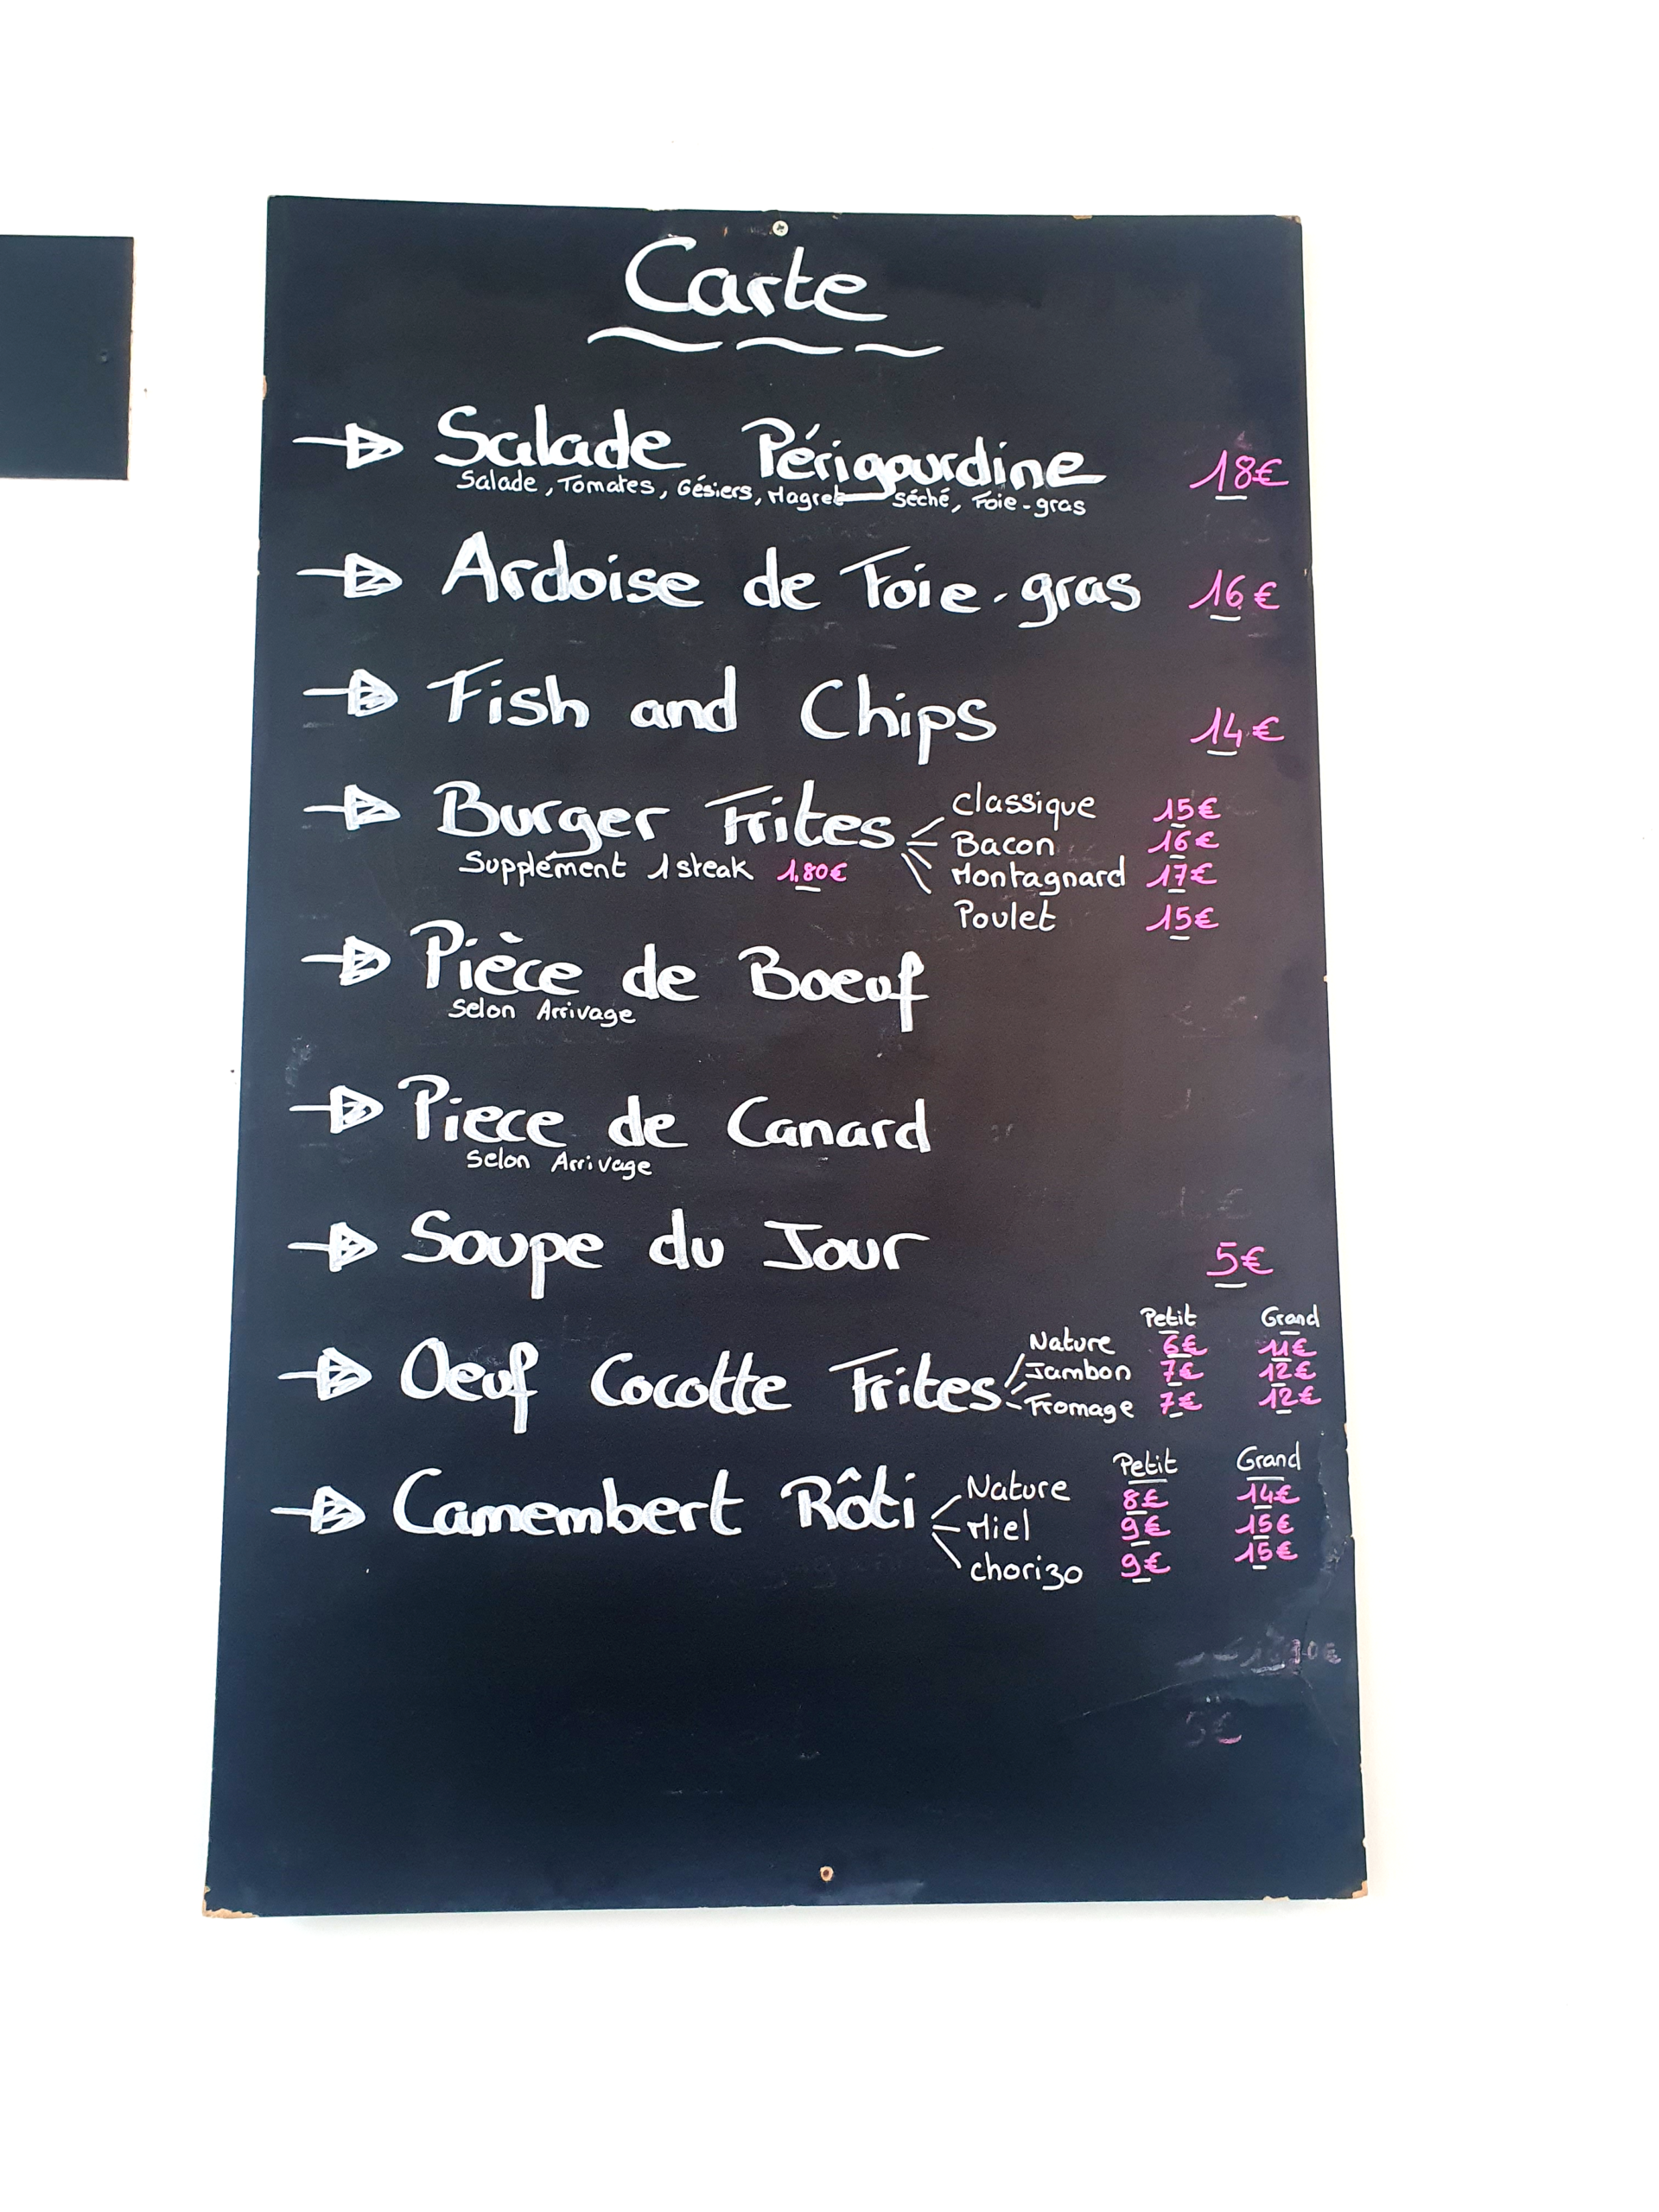 Carte
Salade Périgourdine 18€
Salade, Tomates, Gésiers, Magret séché, Foie-gras
Ardoise de Foie-gras 16€
Fish and Chips 14€
Burger Frites
Classique 15€
Bacon 16€
Supplément 1 steak 1,80€
Montagnard 17€
Poulet 15€
Pièce de Boeuf
Selon Arrivage
Piece de Canard
Selon Arrivage
Soupe du Jour 5€
Petit Grand
Oeuf Cocotte Frites
Nature 6€ 11€
Jambon 7€ 12€
Fromage 7€ 12€
Petit Grand
Camembert Rôti
Nature 8€ 14€
Miel 9€ 15€
chorizo 9€ 15€
5€